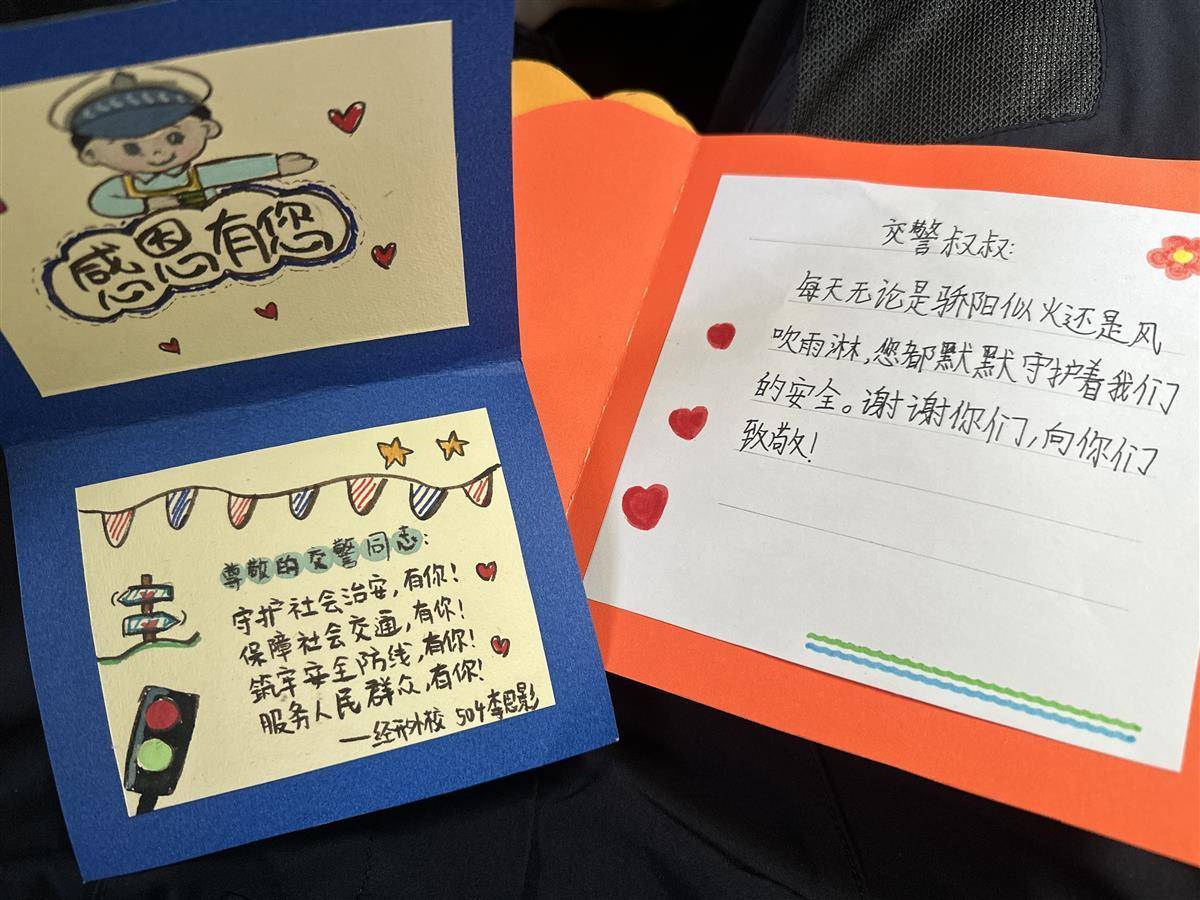 感恩有您
尊敬的交警同志:
守护社会治安,有你!
保障社会交通,有你!
筑牢安全防线,有你!
服务人民群众,有你!
—经形外校 504李思影
交警叔叔:
每天无论是骄阳似火还是风
吹雨淋,您都默默守护着我们
的安全。谢谢你们,向你们
致敬!